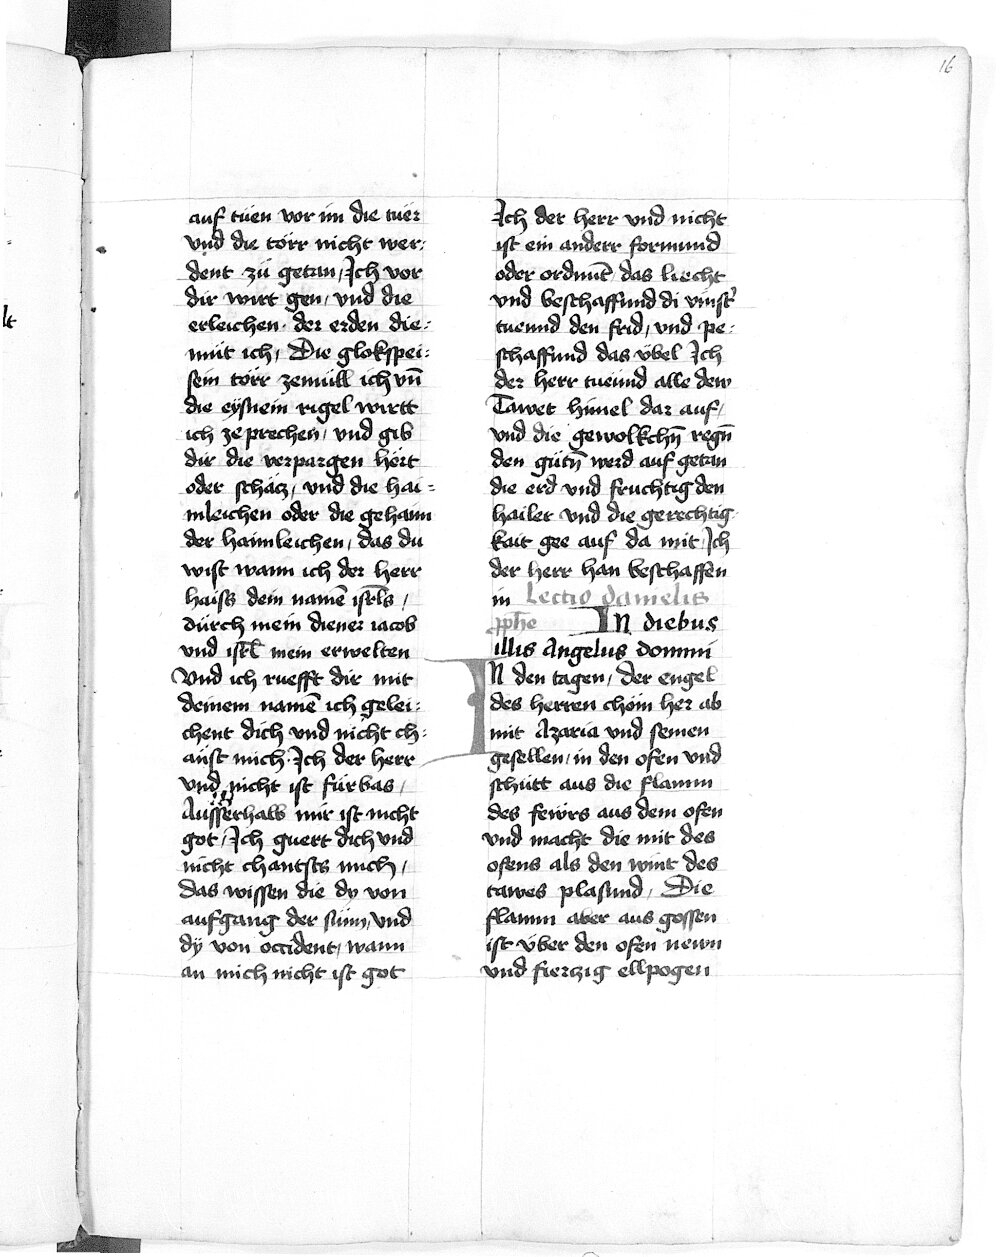 16
auf tüen vor im die tüer
vnd die törr nicht wer⸗
dent zü getan / Ich vor
dir wirt gen / vnd die
erleichen der erden die⸗
müt ich / Die glokspei⸗
sein törr zemüll ich vn̄
die eysnein rigel wirtt
ich ze prechen / vnd gib
dir die verpargen hört
oder schäcz / vnd die hai⸗
mleichen oder die gehaim
der haimleichen / das du
wist wann ich der herr
haiss dein namē isrl̄s /
dürch mein diener iacob
vnd isrl̄ mein erwelten
Vnd ich ruefft dir mit
deinem namē ich gelei⸗
chent dich vnd nicht ch⸗
anst mich · Ich der herr
vnd nicht ist fürbas /
Ausserhalb mir ist nicht
got / Ich guert dich vnd
nicht chantsts mich /
das wissen die dy von
aufgang der sünn / vnd
dÿ von occident / wann
an mich nicht ist got
Ich der herr vnd nicht
ist ein anderr formund
oder ordnūt das liecht
vnd beschaffund di vinst̾
tueund den frid / vnd pe⸗
schaffund das v̈bel Ich
der herr tueund alle dew
Tawet himel dar auf /
vnd die gewolkchn̄ regn̄
den gütn̄ werd auf getan
die erd vnd fruchtig den
hailer vnd die gerechtig⸗
kait gee auf da mit / Ich
der herr han beschaffen
in Lectio danielis
ꝓphe IN diebus
illis Angelus domini
IN den tagen / der engel
des herren chöm her ab
mit Azaria vnd seinen
gesellen / in den ofen vnd
schütt aus die flamm
des fewrs aus dem ofen
vnd macht die mit des
ofens als den wint des
tawes plasund / Die
flamm aber aus gossen
ist v̈ber den ofen newn
vnd fierczig ellpogen
lt